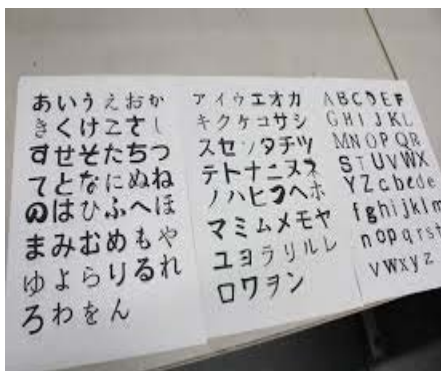 あいうえおか
きくけこさし
すせそたちつ
てとなにぬね
のはひふへほ
まみむめもや
ゆよらりるれ
ろわをん
アイウエオカ
キクケコサシ
スセソタチツ
テトナニヌネ
ノハヒフヘホ
マミムメモヤ
ユヨラリルレ
ロワヲン
ABCDEF
GHIJKL
MNOPQR
STUVWX
YZcbcde
fghijklm
nopqrst
vwxyz